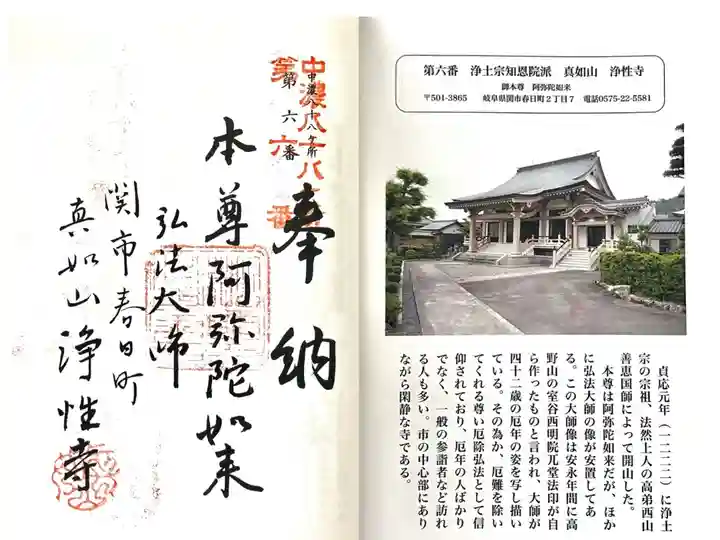 奉納
中濃八十八ヶ所
第六番
中濃八十八ヶ所
第六番
本尊阿弥陀如来
弘法大師
関市春日町
真如山浄性寺
第六番　浄土宗知恩院派　真如山　浄性寺
御本尊　阿弥陀如来
〒501-3865　岐阜県関市春日町２丁目７　電話0575-22-5581
貞応元年（一二二二）に浄土
宗の宗祖、法然上人の高弟西山
善恵国師によって開山した。
本尊は阿弥陀如来だが、ほか
に弘法大師の像が安置してあ
る。この大師像は安永年間に高
野山の室谷西明院兀堂法印が自
ら作ったものと言われ、大師が
四十二歳の厄年の姿を写し描い
ている。その為か、厄難を除い
てくれる尊い厄除弘法として信
仰されており、厄年の人ばかり
でなく、一般の参詣者など訪れ
る人も多い。市の中心部にあり
ながら閑静な寺である。